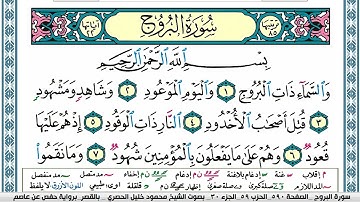 سُورَةُ البُرُوجِ
بِسْمِ ٱللَّهِ ٱلرَّحْمَٰنِ ٱلرَّحِيمِ
وَٱلسَّمَآءِ ذَاتِ ٱلْبُرُوجِ ١ وَٱلْيَوْمِ ٱلْمَوْعُودِ ٢ وَشَاهِدٍ وَمَشْهُودٍ
٣ قُتِلَ أَصْحَٰبُ ٱلْأُخْدُودِ ٤ ٱلنَّارِ ذَاتِ ٱلْوَقُودِ ٥ إِذْ هُمْ عَلَيْهَا
قُعُودٌ ٦ وَهُمْ عَلَىٰ مَا يَفْعَلُونَ بِٱلْمُؤْمِنِينَ شُهُودٌ ٧ وَمَا نَقَمُوا۟
سورة البروج - الصفحة ٥٩٠ - الحزب ٥٩ - الجزء ٣٠ - بصوت الشيخ محمود خليل الحصري - بالقصر - برواية حفص عن عاصم